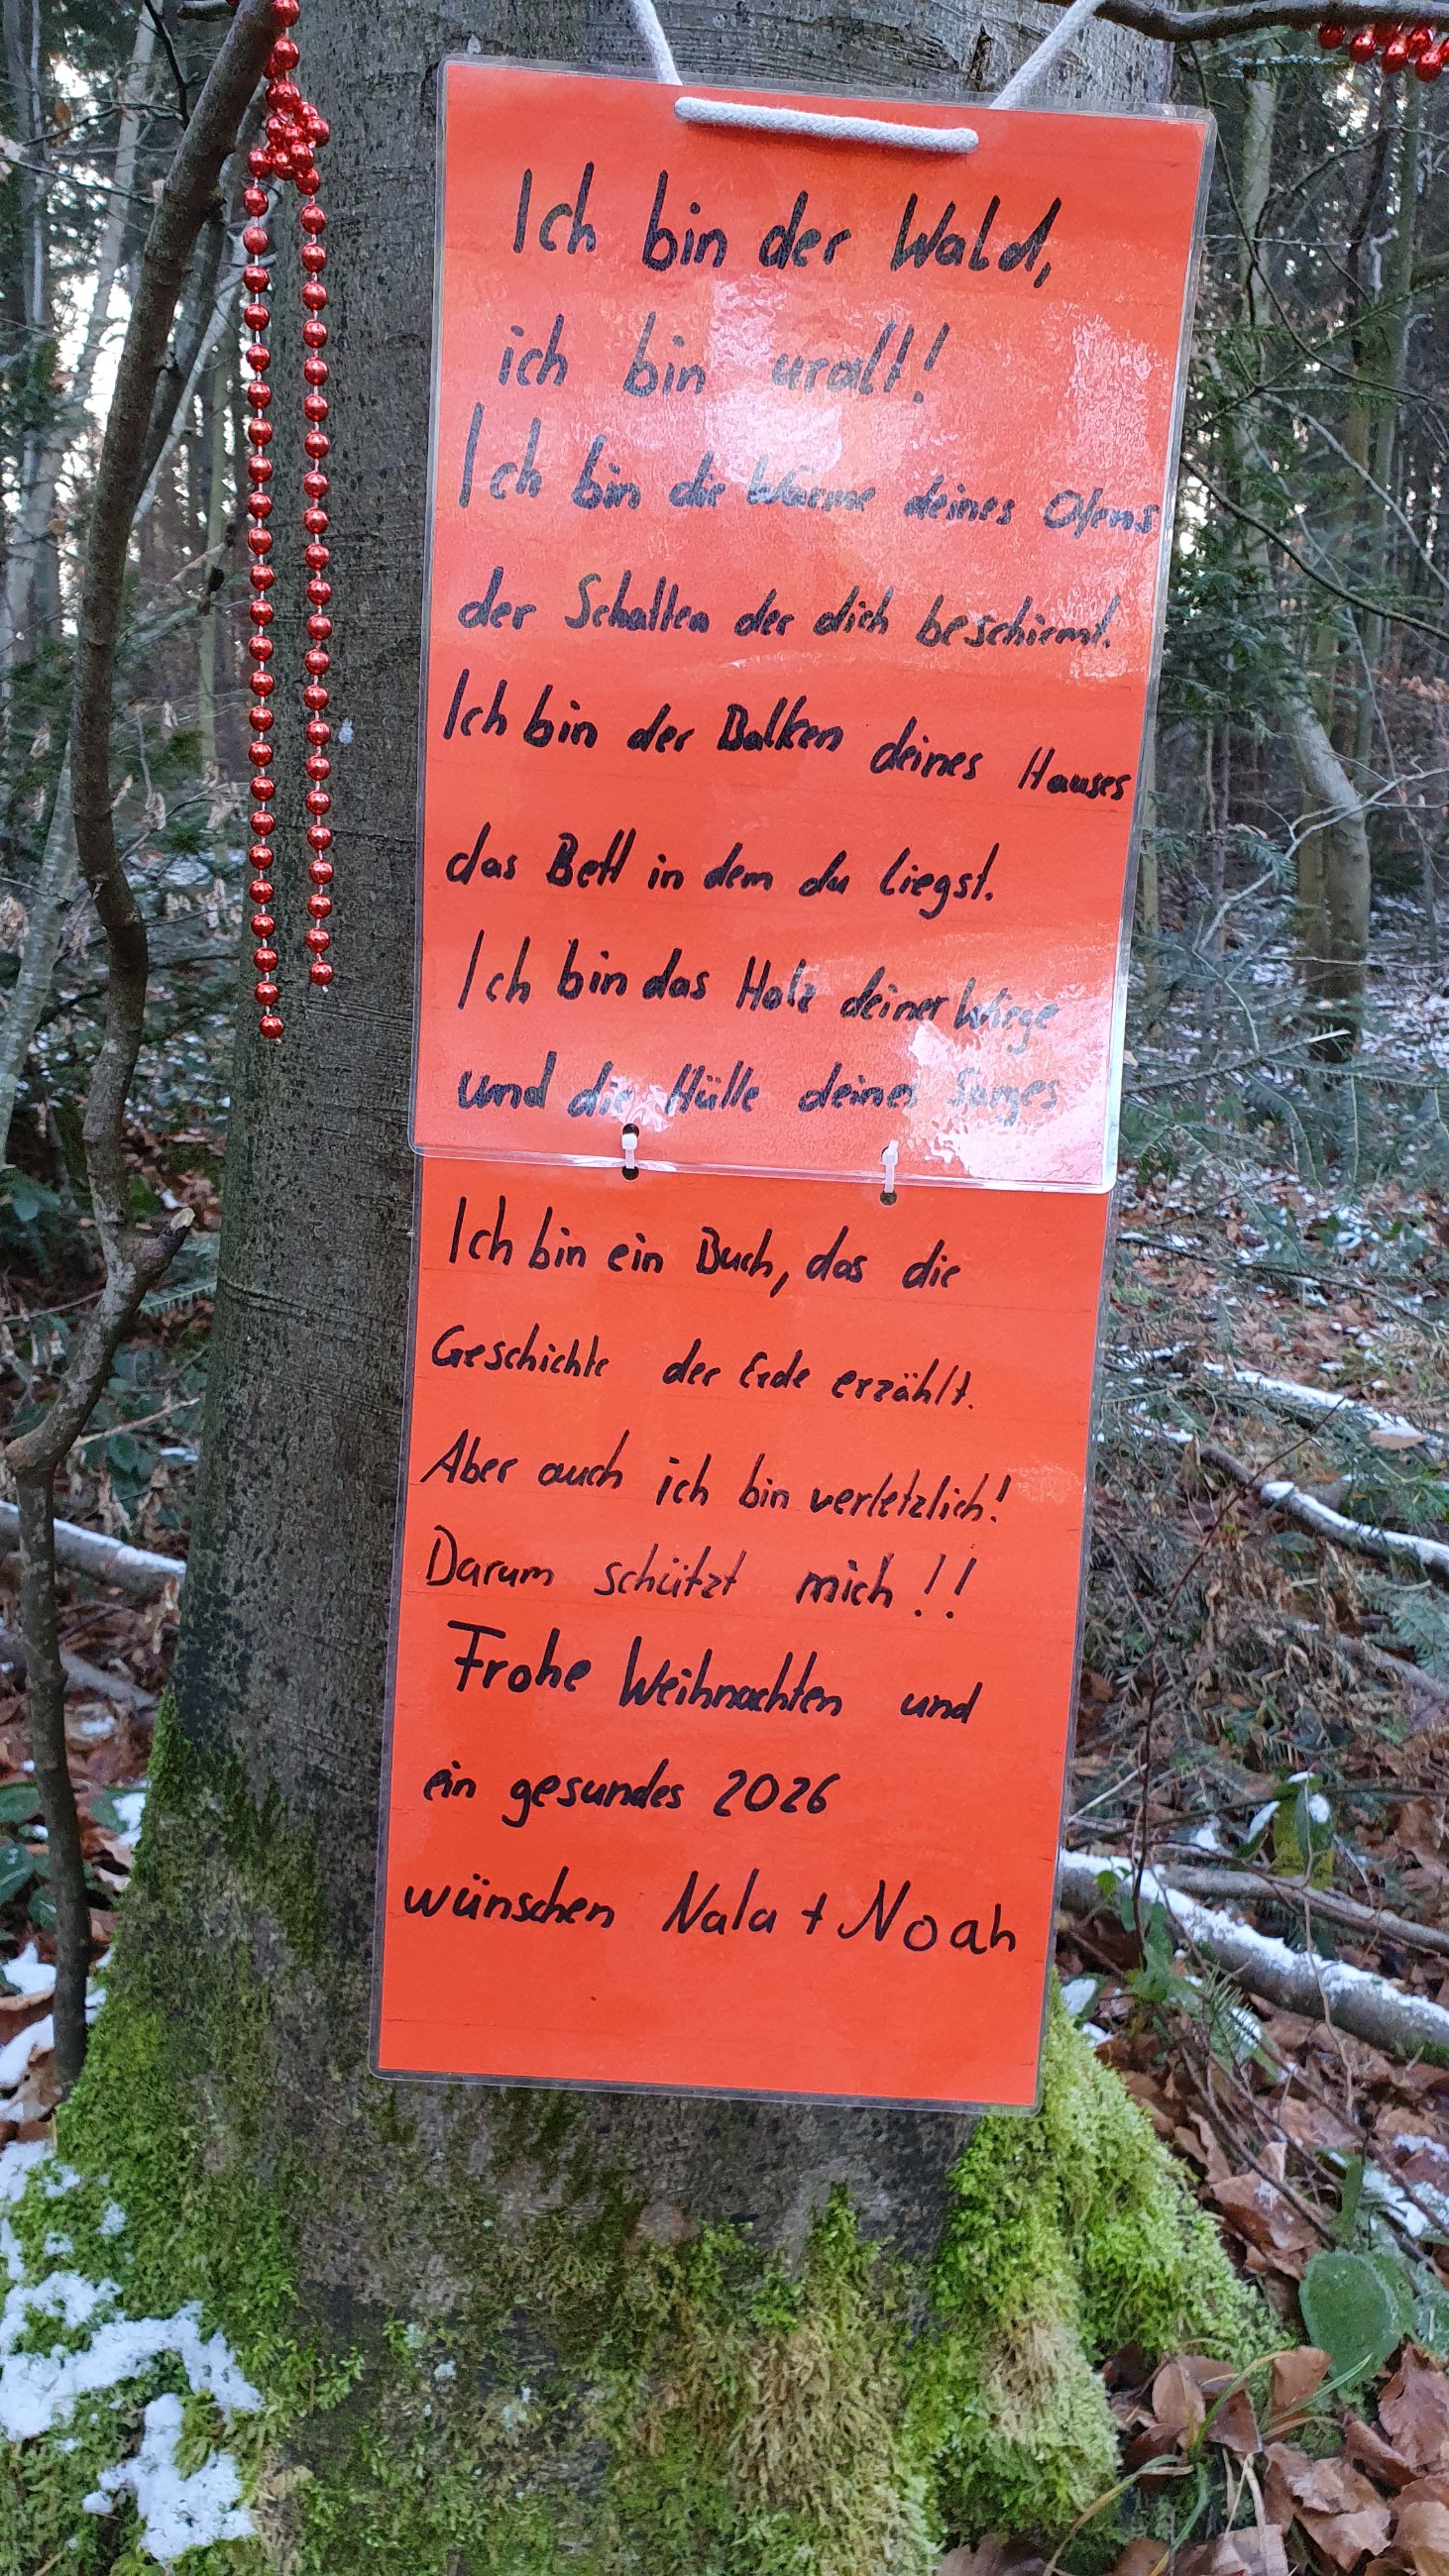 Ich bin der Wald,
ich bin uralt!
Ich bin die Wärme deines Ofens
der Schatten der dich beschirmt.
Ich bin der Balken deines Hauses
das Bett in dem du liegst.
Ich bin das Holz deiner Wiege
und die Hülle deines Sarges
Ich bin ein Buch, das die
Geschichte der Erde erzählt.
Aber auch ich bin verletzlich!
Darum schützt mich!!
Frohe Weihnachten und
ein gesundes 2026
wünschen Nala + Noah